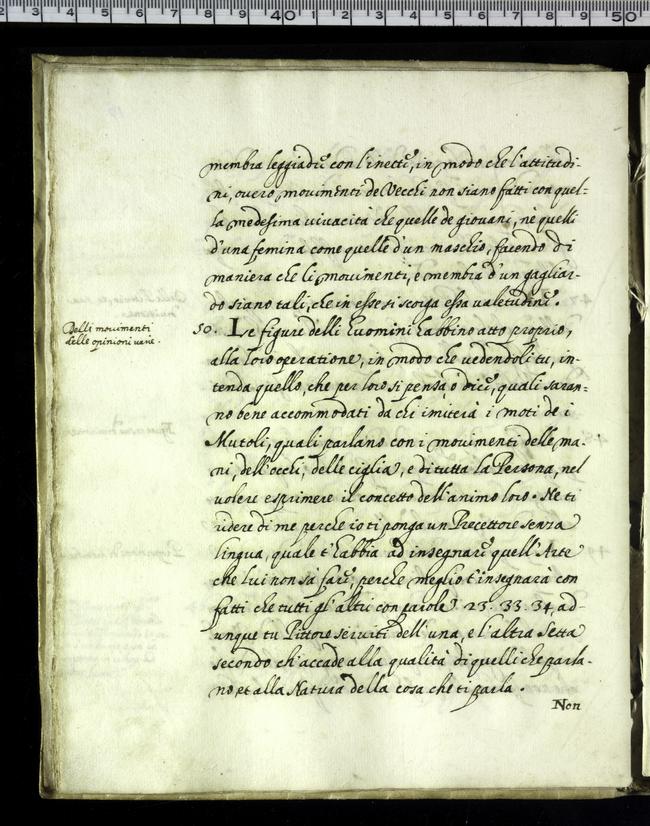 membra leggiadre con l'inette, in modo che l'attitudi-
ni, overo movimenti de Vecchi non siano fatti con quel-
la medesima vivacità che quelle de giovani, nè quelli
d'una femina come quelle d'un maschio, facendo di
maniera che li movimenti, e membra d'un gagliar-
do siano tali, che in esse si scorga essa valetudine.
Delli movimenti
delle opinioni varie.
50. Le figure delli huomini habbino atto proprio,
alla loro operatione, in modo che vedendoli tu, in-
tenda quello, che per loro si pensa, ò dice, quali saran-
no bene accommodati da chi imiterà i moti de i
Mutoli, quali parlano con i movimenti delle ma-
ni, dell'occhi, delle ciglia, e di tutta la Persona, nel
volere esprimere il concetto dell'animo loro. Ne ti
ridere di me perche io ti ponga un Precettore senza
lingua, quale t'habbia ad insegnare quell'Arte
che lui non sà fare, perche meglio t'insegnarà con
fatti che tutti gl'altri con parole 25. 33. 34, ad-
unque tu Pittore serviti dell'una, e l'altra Setta
secondo ch'accade alla qualità di quelli che parla-
no et alla Natura della cosa che ti parla.
Non